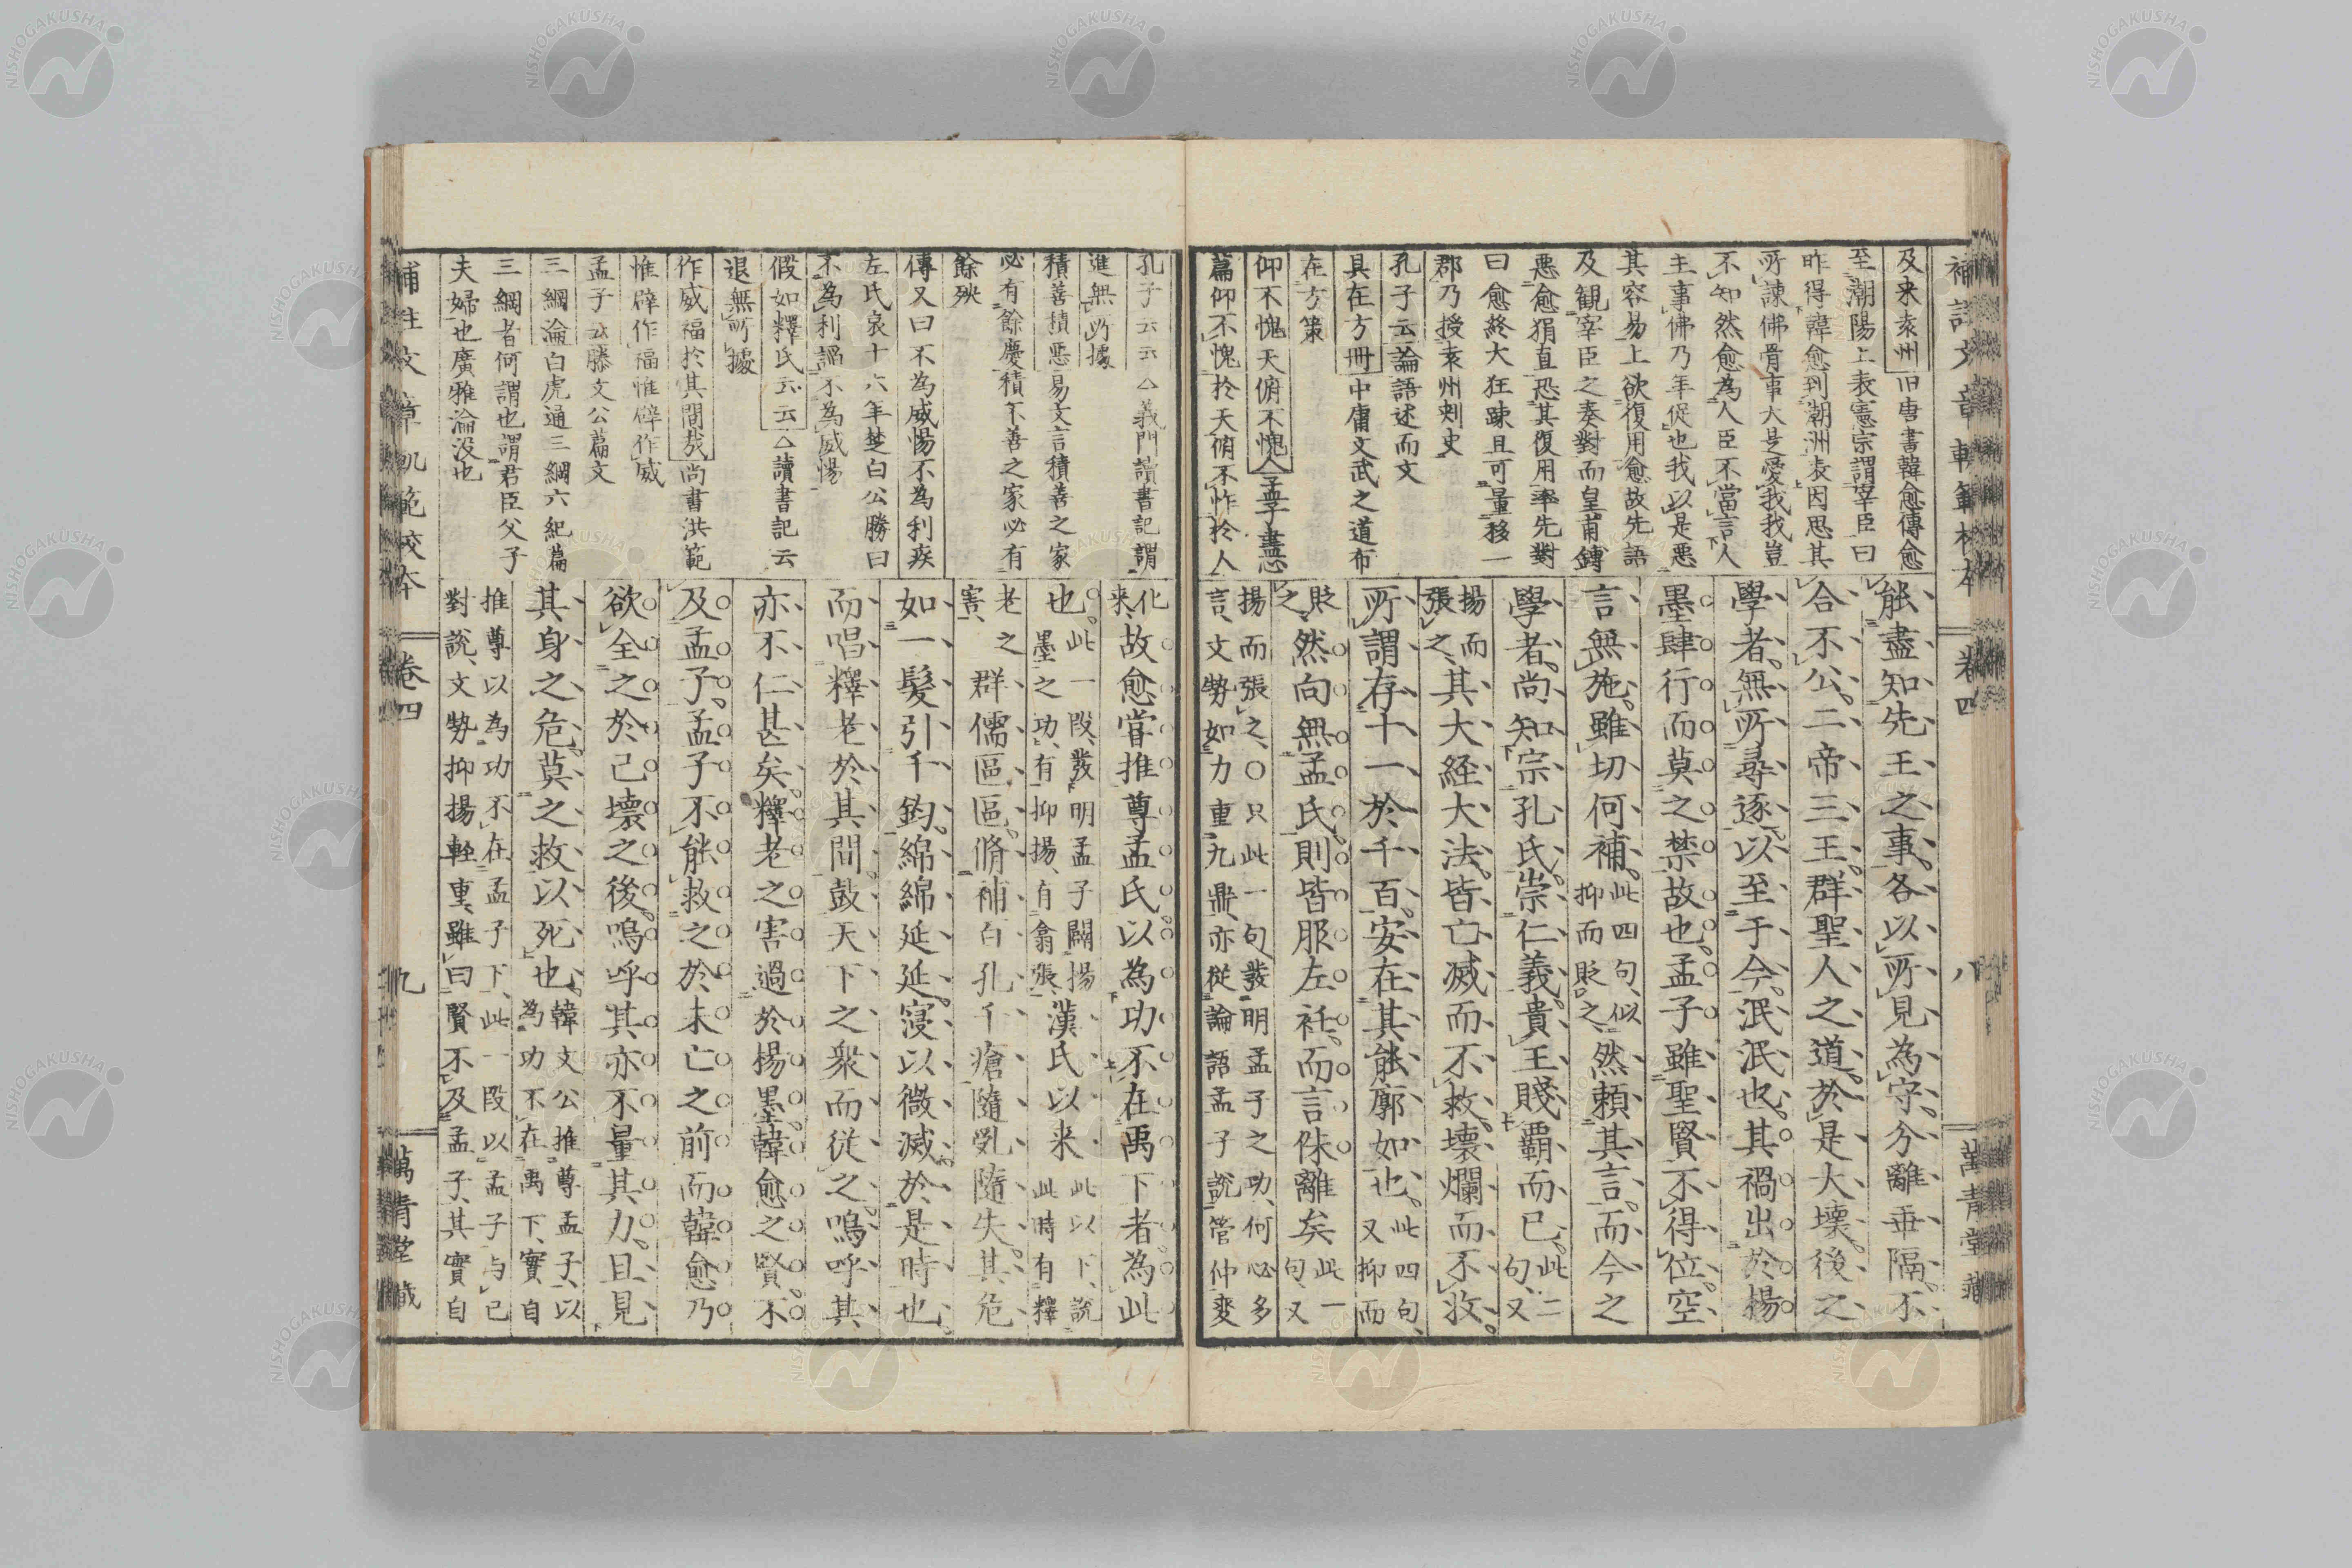 補註文章軌範校本
卷四
八
萬青堂藏
及来袁州旧唐書韓愈傳愈
至潮陽上表憲宗謂宰臣曰
昨得韓愈到潮洲表因思其
所諫佛骨事大是愛我我豈
不知然愈為人臣不當言人
主事佛乃年促也我以是惡
其容易上欲復用愈故先語
及観宰臣之奏對而皇甫鎛
惡愈狷直恐其復用率先對
曰愈終大狂踈且可量移一
郡乃授袁州刺史
孔子云云論語述而文
具在方冊中庸文武之道布
在方策
仰不愧天俯不愧人孟子盡心
篇仰不愧於天俯不怍於人
能盡知先王之事各以所見為守分離乖隔不
合不公二帝三王群聖人之道於是大壞後之
學者無所尋逐以至于今泯泯也其禍出於楊
墨肆行而莫之禁故也孟子雖聖賢不得位空
言無施雖切何補此四句似抑而貶之然頼其言而今之
學者尚知宗孔氏崇仁義貴王賤覇而已此二句又
揚而張之其大経大法皆亡滅而不救壞爛而不收
所謂存十一於千百安在其能廓如也此四句又抑而
貶之然向無孟氏則皆服左衽而言侏離矣此一句又
揚而張之○只此一句發明孟子之功何必多
言文勢如力重九鼎亦從論語孟子說管仲變
孔子云云△義門讀書記謂
進無所據
積善積惡易文言積善之家
必有餘慶積不善之家必有
餘殃
傳又曰不為威惕不為利疚
左氏哀十六年楚白公勝曰
不為利謟不為威惕
假如釋氏云云△讀書記云
退無所據
作威福於其間哉尚書洪範
惟辟作福惟辟作威
孟子云滕文公篇文
三綱淪白虎通三綱六紀篇
三綱者何謂也謂君臣父子
夫婦也廣雅淪没也
化来故愈嘗推尊孟氏以為功不在禹下者為此
也此一段發明孟子闢揚墨之功有抑揚有翕張漢氏以来此以下說此時有釋
老之害群儒區區脩補百孔千瘡隨乱隨失其危
如一髮引千鈞綿綿延延寖以微滅於是時也
而唱釋老於其間鼓天下之衆而従之嗚呼其
亦不仁甚矣釋老之害過於楊墨韓愈之賢不
及孟子孟子不能救之於未亡之前而韓愈乃
欲全之於己壊之後嗚呼其亦不量其力且見
其身之危莫之救以死也韓文公推尊孟子以為功不在禹下實自
推尊以為功不在孟子下此一段以孟子与己
對說文勢抑揚輕重雖曰賢不及孟子其實自
補註文章軌範校本
卷四
九
萬青堂藏